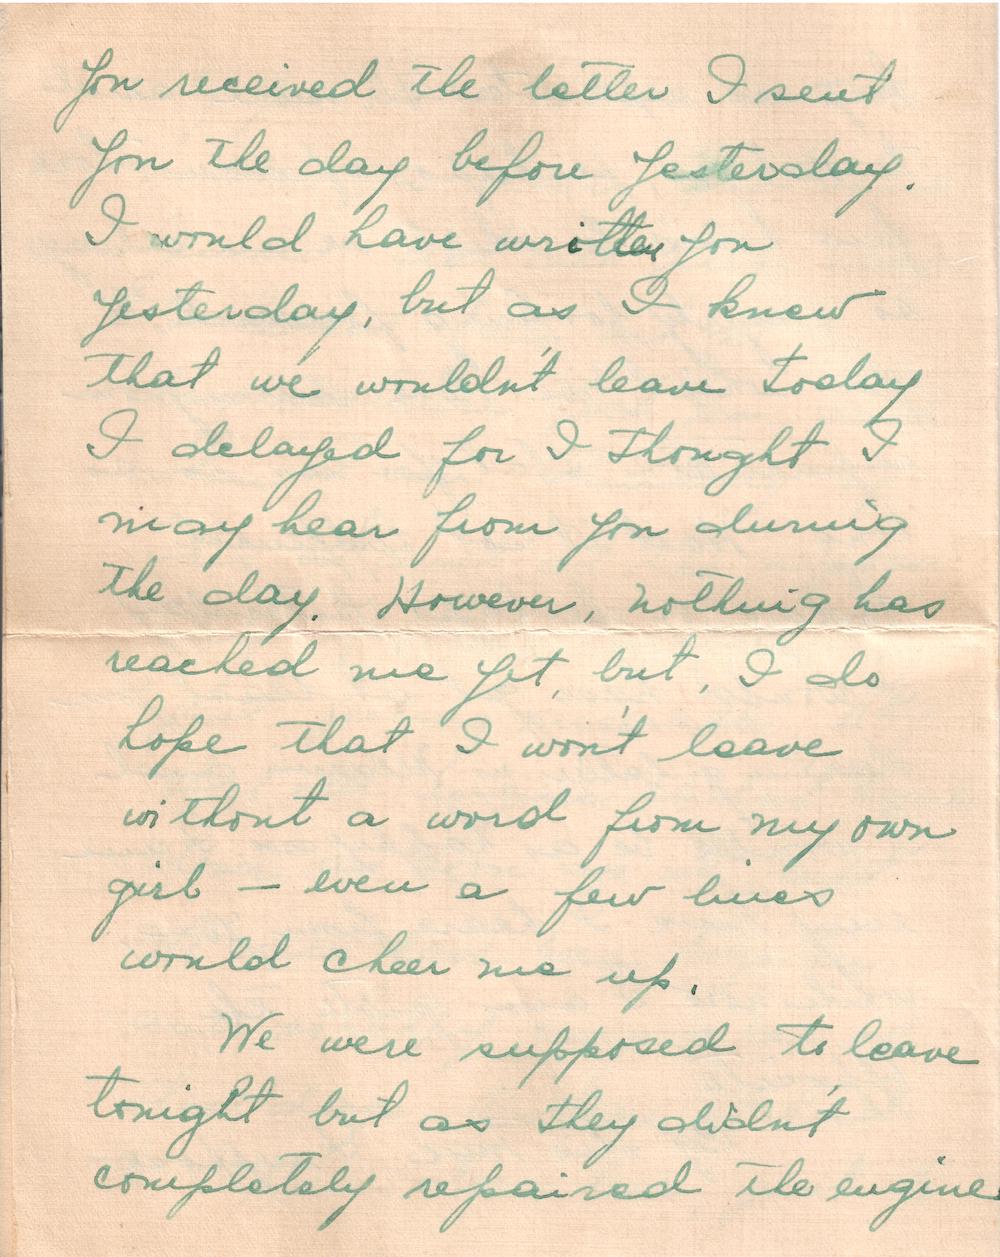 you received the letter I sent
you the day before yesterday.
I would have written you
yesterday, but as I knew
that we wouldn't leave today
I delayed for I thought I
may hear from you during
the day. However, nothing has
reached me yet, but, I do
hope that I won't leave
without a word from my own
girl — even a few lines
would cheer me up.
We were supposed to leave
tonight but as they didn't
completely repaired the engine